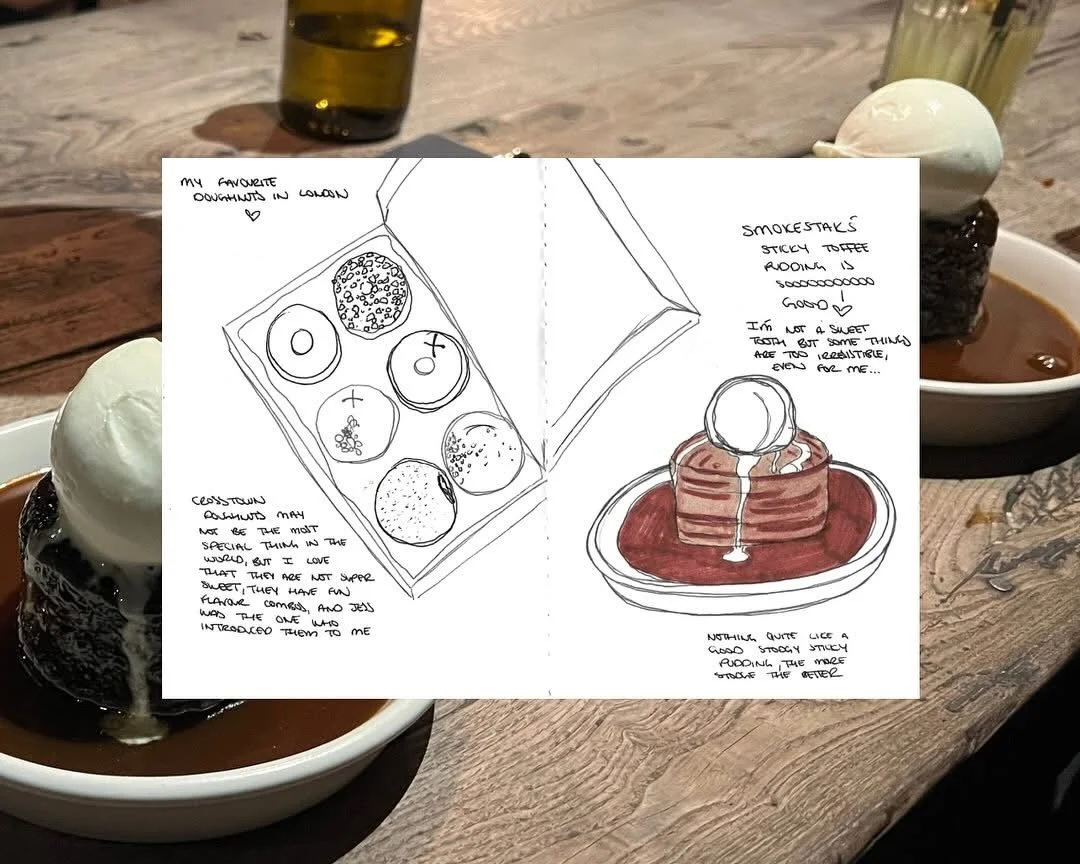 MY FAVOURITE
DOUGHNUTS IN LONDON
CROSSTOWN
DOUGHNUTS MAY
NOT BE THE MOST
SPECIAL THING IN THE
WORLD, BUT I LOVE
THAT THEY ARE NOT SUPER
SWEET, THEY HAVE FUN
FLAVOUR COMBOS, AND JESS
WAS THE ONE WHO
INTRODUCED THEM TO ME
SMOKESTAK'S
STICKY TOFFEE
PUDDING IS
SOOOOOOOOOOO
GOOD!
I'M NOT A SWEET
TOOTH BUT SOME THINGS
ARE TOO IRRESISTIBLE,
EVEN FOR ME...
NOTHING QUITE LIKE A
GOOD STODGY STICKY
PUDDING, THE MORE
STODGE THE BETTER